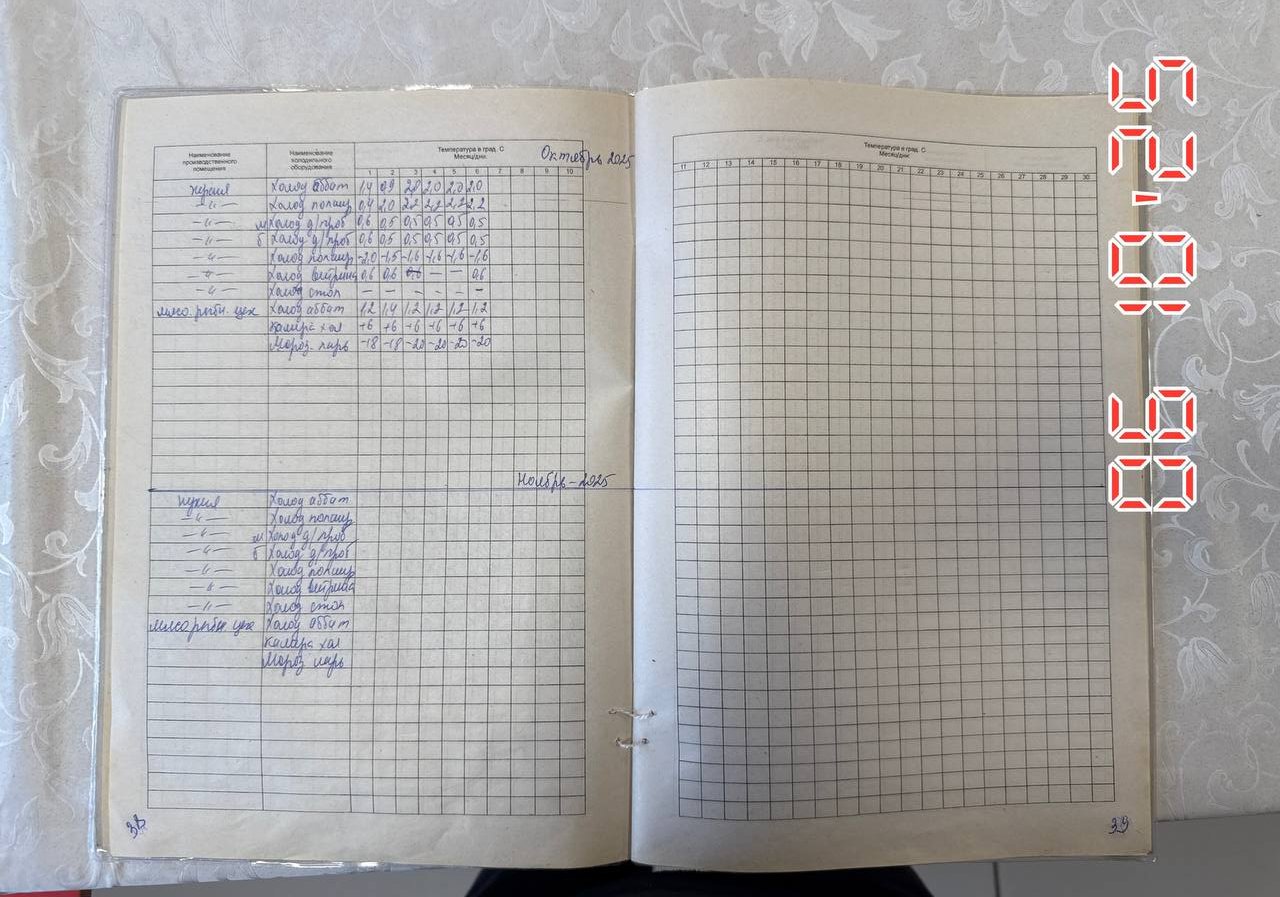 Наименование производственного помещения Наименование холодильного оборудования Температура в град. С Месяц/дни: Октябрь 2025
1 2 3 4 5 6 7 8 9 10
кухня Холод аббат 1,4 0,9 2,0 2,0 2,0 2,0
—〃— Холод попаир 0,4 2,0 2,2 2,2 2,2 2,2
—〃— м Холод д/проб 0,6 0,5 0,5 0,5 0,5 0,5
—〃— б Холод д/проб 0,6 0,5 0,5 0,5 0,5 0,5
—〃— Холод попаир -2,0 -1,5 -1,6 -1,6 -1,6 -1,6
—〃— Холод витрина 0,6 0,6 — — 0,6
—〃— Холод стол — — — — — —
мясо.рыбн. цех Холод аббат 1,2 1,4 1,2 1,2 1,2 1,2
Камера хол +6 +6 +6 +6 +6 +6
Мороз. ларь -18 -18 -20 -20 -20 -20
Ноябрь – 2025
кухня Холод аббат
—〃— Холод попаир
—〃— м Холод д/проб
—〃— б Холод д/проб
—〃— Холод попаир
—〃— Холод витрина
—〃— Холод стол
мясорыбн. цех Холод аббат
Камера хол
Мороз ларь
38
Температура в град. С
Месяц/дни:
11 12 13 14 15 16 17 18 19 20 21 22 23 24 25 26 27 28 29 30
39
06 10 '25